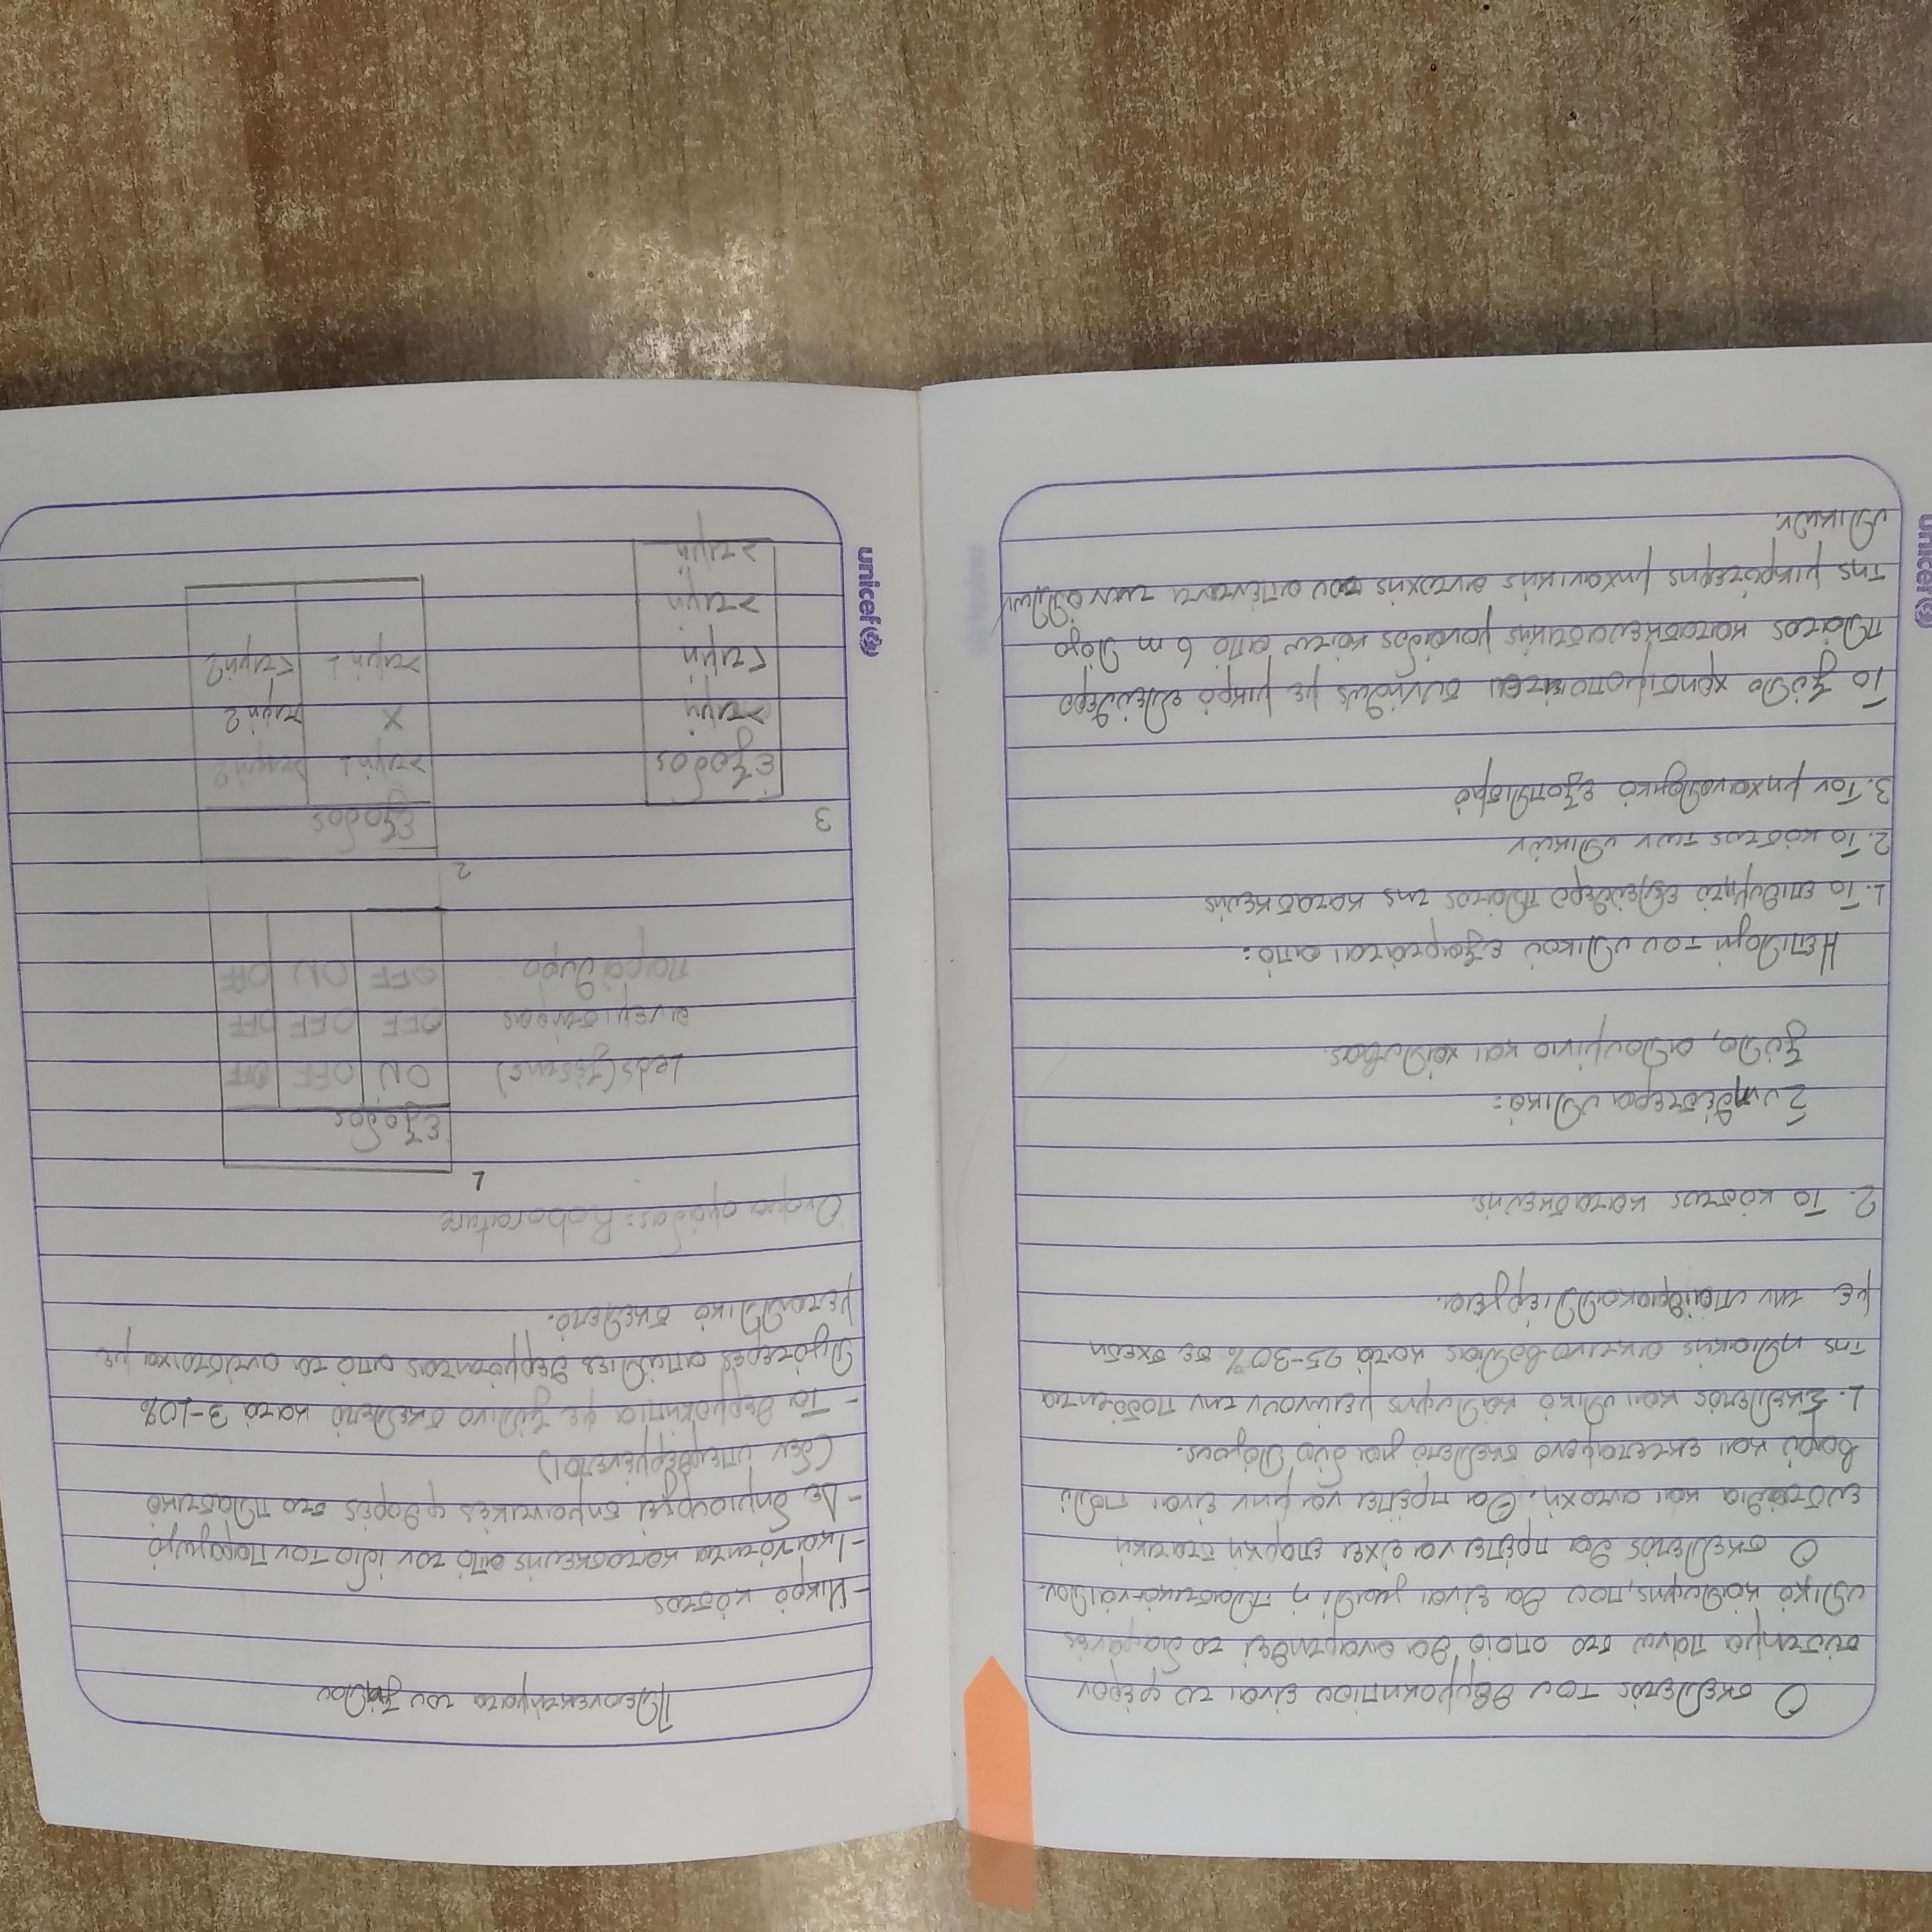 Ο σκελετός του θερμοκηπίου είναι το φέρον
σύστημα πάνω στο οποίο θα αναρτηθεί το διαφανές
υλικό κάλυψης, που θα είναι γυαλί ή πλαστικό-νάιλον.
Ο σκελετός θα πρέπει να έχει επαρκή στατική
ευστάθια και αντοχή. Θα πρέπει να μην είναι πολύ
βαρύ και εκτεταμένο σκελετό για δύο λόγους.
1. Σκελετός και υλικό κάλυψης μειώνουν την ποσότητα
της ηλιακής ακτινοβολίας κατά 25-30% σε σχέση
με την υπαίθρια καλλιέργεια.
2. Το κόστος κατασκευής.
Συνηθέστερα υλικά:
Ξύλο, αλουμίνιο και χάλυβας.
Η επιλογή του υλικού εξαρτάται από:
1. Το επιθυμητό ελεύθερο πλάτος της κατασκευής
2. Το κόστος των υλικών
3. Τον μηχανολογικό εξοπλισμό
Το ξύλο χρησιμοποιείται συνήθως με μικρό ελεύθερο
πλάτος κατασκευαστικής μονάδος κάτω από 6 m λόγο
της μικρότερης μηχανικής αντοχής του απέναντι των άλλων
υλικών.
unicef
Πλεονεκτήματα του ξύλου
- Μικρό κόστος
- Ικανότητα κατασκευής από τον ίδιο τον παραγωγό
- Δε δημιουργεί σημαντικές φθορές στο πλαστικό
(δεν υπερθερμένεται)
- Τα θερμοκήπια με ξύλινο σκελετό κατά 3-10%
λιγότερες απώλιες θερμότητας από τα αντίστοιχα με
μεταλλικό σκελετό.
Όνομα ομάδας: Roborature
1
έξοδος
Leds (ζέστης) ON OFF OFF
ανεμιστήρας OFF OFF OFF
παράθυρο OFF ON OFF
2
έξοδος
>τιμή 1 >τιμή 2
X >τιμή 2
>τιμή 1 <τιμή 2
3
έξοδος
>τιμή
<τιμή
>τιμή
>τιμή
unicef